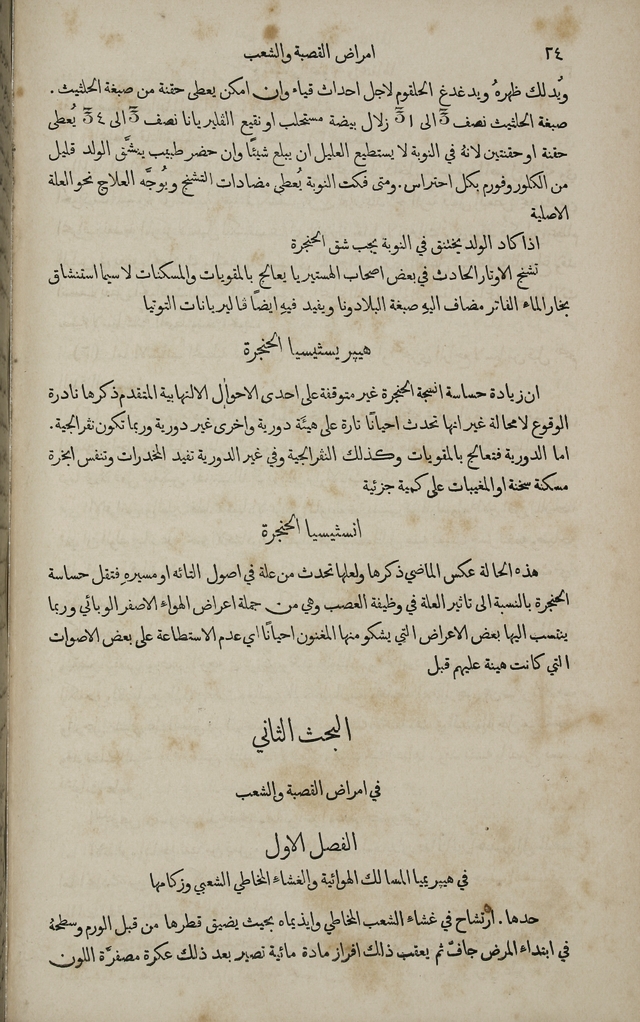 ٢٤
امراض القصبة والشعب
ويُدلك ظهرهُ ويدغدغ الحلقوم لاجل احداث قياء وان امكن يعطى حقنة من صبغة الحلثيث .
صبغة الحلثيث نصف 3̄ الى 3̄1 زلال بيضة مستحلب او نقيع الڤليريانا نصف 3̄ الى 3̄٤ يُعطى
حقنة او حقنتين لانهُ في النوبة لا يستطيع العليل ان يبلع شيئًا وان حضر طبيب ينشَّق الولد قليل
من الكلوروفورم بكل احتراس . ومتى فكت النوبة يُعطى مضادات التشنج ويُوجَّه العلاج نحو العلة
الاصلية
اذا كاد الولد يختنق في النوبة يجب شق الحنجرة
تشنج الاوتار الحادث في بعض اصحاب الهستيريا يعالج بالمقويات والمسكنات لاسيما استنشاق
بخار الماء الفاتر مضاف اليهِ صبغة البلادونا ويفيد فيهِ ايضًا ڤاليريانات التوتيا
هيپريستيسيا الحنجرة
ان زيادة حساسة انسجة الحنجرة غير متوقفة على احدى الاحوال الالتهابية المتقدم ذكرها نادرة
الوقوع لامحالة غير انها تحدث احيانًا تارة على هيئَة دورية واخرى غير دورية وربما تكون نڤرالجية .
اما الدورية فتعالج بالمقويات وكذلك النڤرالجية وفي غير الدورية تفيد المخدرات وتنفس ابخرة
مسكنة سخنة او المغيبات على كمية جزئية
انستيسيا الحنجرة
هذه الحالة عكس الماضي ذكرها ولعلها تحدث من علة في اصول التائه او مسيرهِ فتقل حساسة
الحنجرة بالنسبة الى تاثير العلة في وظيفة العصب وهي من جملة اعراض الهواء الاصفر الوبائي وربما
ينتسب اليها بعض الاعراض التي يشكو منها المغنون احيانًا اي عدم الاستطاعة على بعض الاصوات
التي كانت هينة عليهم قبل
البحث الثاني
في امراض القصبة والشعب
الفصل الاول
في هيپريميا المسالك الهوائية والغشاء المخاطي الشعبي وزكامها
حدها . ارتشاح في غشاء الشعب المخاطي وايذيماه بحيث يضيق قطرها من قبل الورم وسطحهُ
في ابتداء المرض جافٌ ثم يعقب ذلك افراز مادة مائية تصير بعد ذلك عكرة مصفرَّة اللون